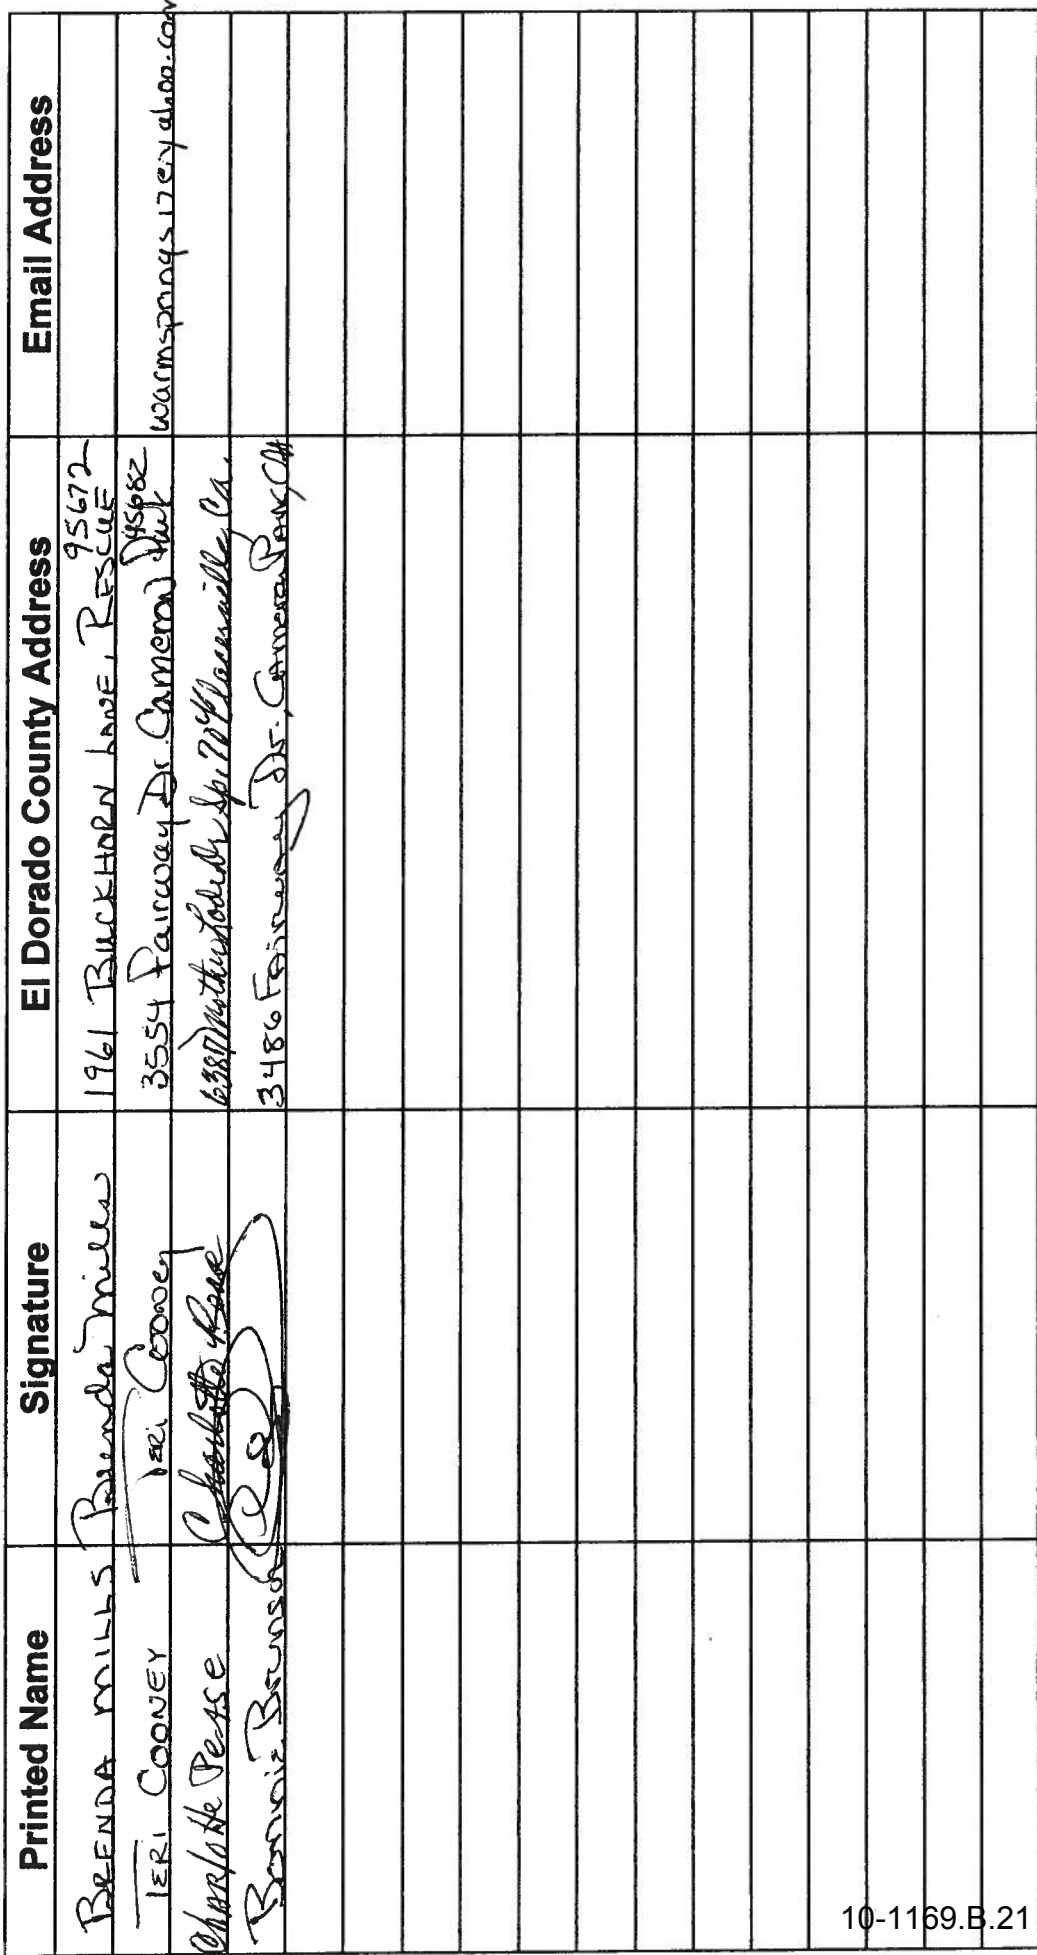 Printed Name Signature El Dorado County Address Email Address
BRENDA MILLS Brenda Mills 1961 BUCKHORN LANE, RESCUE 95672
TERI COONEY Teri Cooney 3554 Fairway Dr. Cameron Park 95682 warmsprings17@yahoo.com
Charlotte Pease Charlotte Pease 6387 Mother Lode Dr Sp. Placerville Ca.
Bonnie 3486 Fairway Dr. Cameron Park, CA
10-1169.B.21